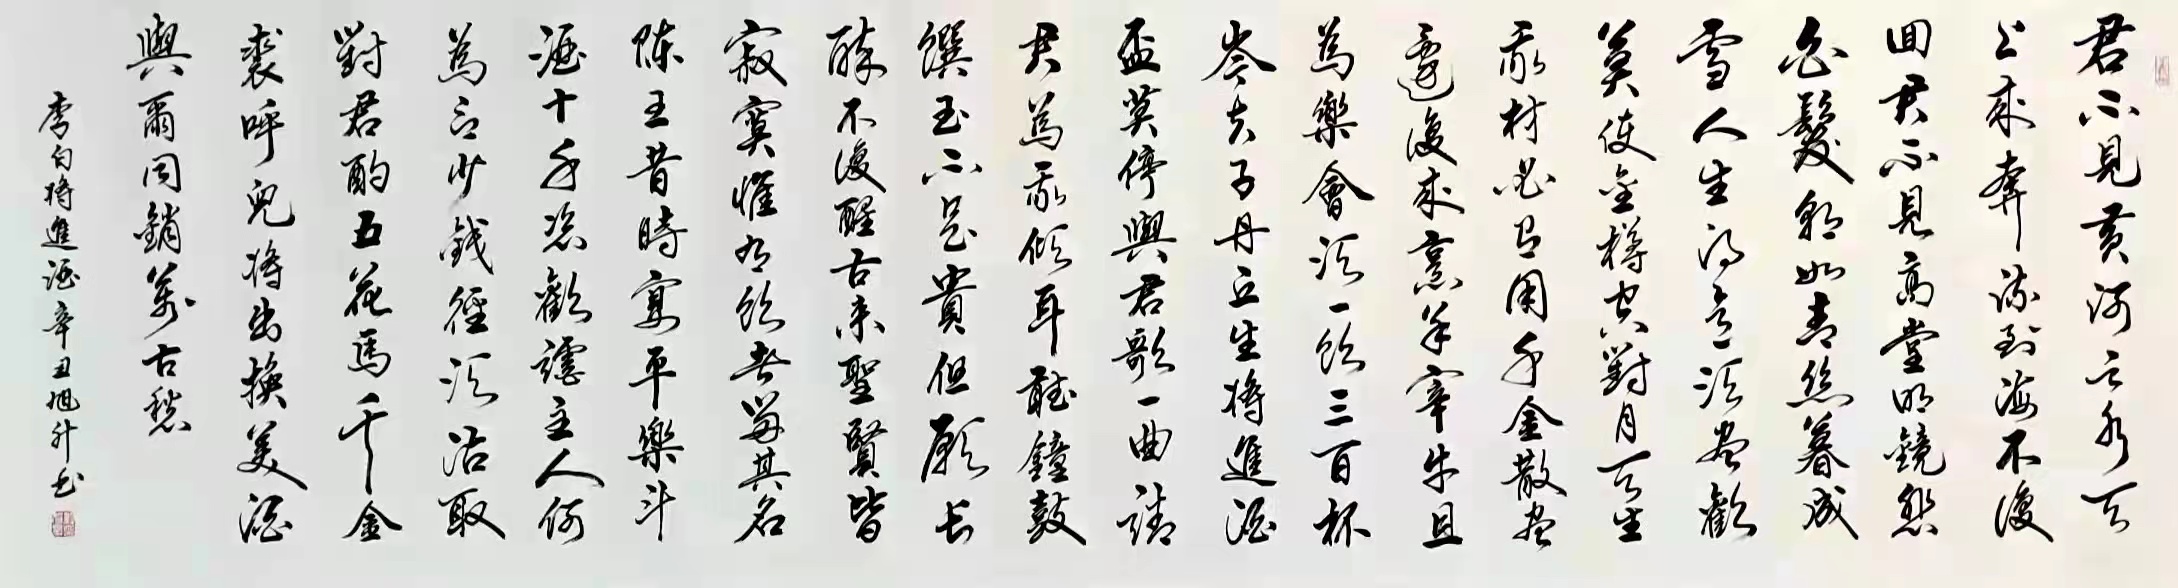 君不見黃河之水天
上來奔流到海不復
回君不見高堂明鏡悲
白髮朝如青絲暮成
雪人生得意須盡歡
莫使金樽空對月天生
我材必有用千金散盡
還復來烹羊宰牛且
為樂會須一飲三百杯
岑夫子丹丘生將進酒
盃莫停與君歌一曲請
君為我傾耳聽鐘鼓
饌玉不足貴但願長
醉不復醒古来聖賢皆
寂寞惟有飲者留其名
陳王昔時宴平樂斗
酒十千恣歡謔主人何
為言少錢徑須沽取
對君酌五花馬千金
裘呼兒將出換美酒
與爾同銷萬古愁
李白將進酒辛丑旭升書